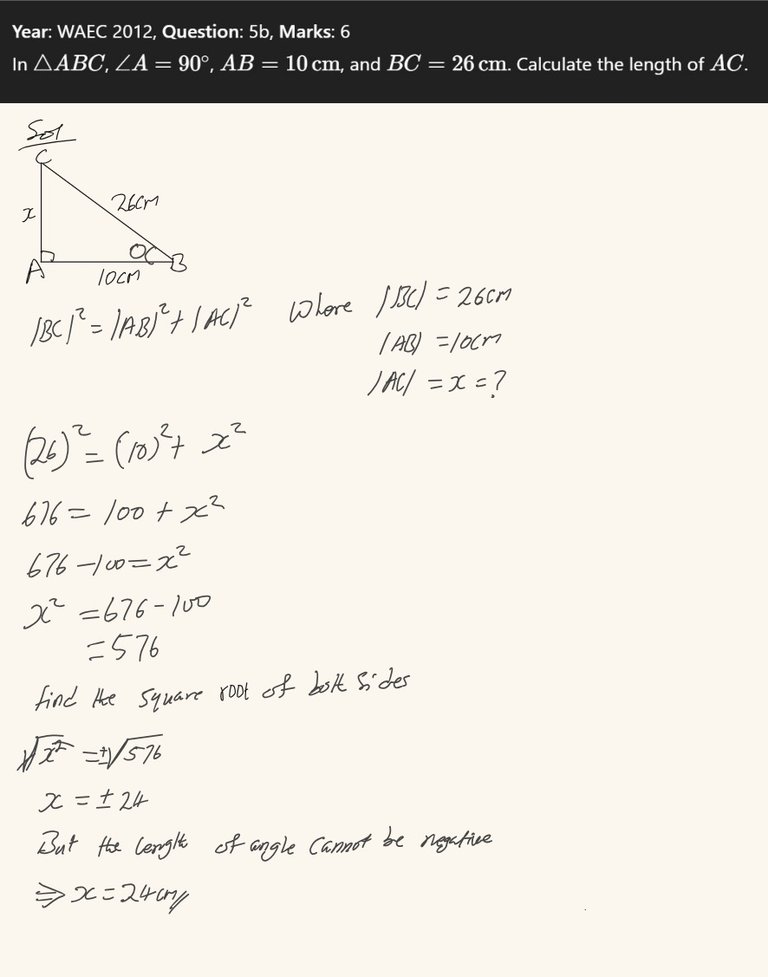 Year: WAEC 2012, Question: 5b, Marks: 6
In △ABC, ∠A = 90°, AB = 10 cm, and BC = 26 cm. Calculate the length of AC.
Sol
C
26cm
x
A
B
10cm
|BC|² = |AB|² + |AC|² Where |BC| = 26cm
|AB| = 10cm
|AC| = x = ?
(26)² = (10)² + x²
676 = 100 + x²
676 - 100 = x²
x² = 676 - 100
= 576
find the square root of both sides
√x² = ±√576
x = ± 24
But the length of angle cannot be negative
⇒ x = 24cm//